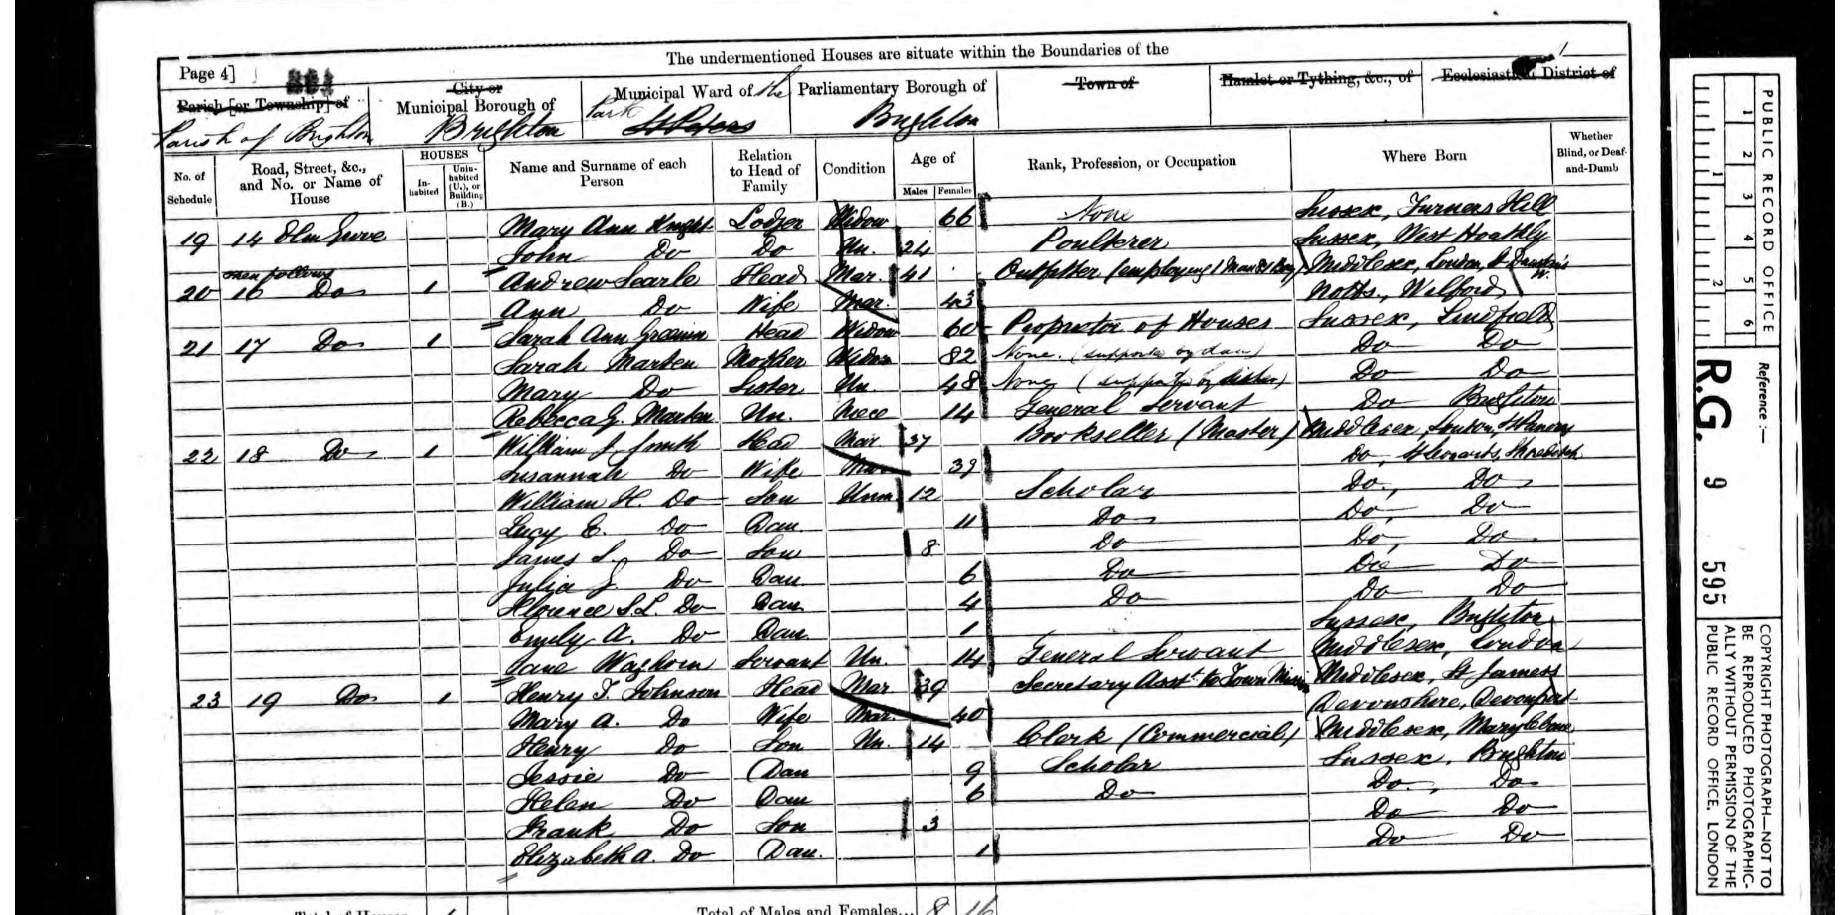 The undermentioned Houses are situate within the Boundaries of the
Page 4]
Parish [or Township] of
City or Municipal Borough of
Municipal Ward of the
Parliamentary Borough of
Town of
Hamlet or Tything, &c., of
Ecclesiastical District of
Parish of Brighton
Brighton
Park St Peters
Brighton
No. of Schedule
Road, Street, &c., and No. or Name of House
HOUSES
In-habited
Unin-habited (U.), or Building (B.)
Name and Surname of each Person
Relation to Head of Family
Condition
Age of
Males
Females
Rank, Profession, or Occupation
Where Born
Whether Blind, or Deaf-and-Dumb
19 14 Elm Grove Mary Ann Knight Lodger Widow 66 None Sussex, Turners Hill
John Do Do Un. 24 Poulterer Sussex, West Hoathly
20 16 Do 1 Andrew Searle Head Mar. 41 Outfitter (employing 1 Man & 1 Boy) Middlesex, London, St Dunstan's W.
Ann Do Wife Mar. 43 Notts, Wilford
21 17 Do 1 Sarah Ann Head Widow 60 Proprietor of Houses Sussex, Lindfield
Sarah Marten Mother Widow 82 None. (supported by dau) Do Do
Mary Do Sister Un. 48 None (supported by sister) Do Do
Rebecca G. Marten Un. Niece 14 General Servant Do Brighton
22 18 Do 1 William J. Smith Head Mar 37 Bookseller (Master) Middlesex, London, St Pancras
Susannah Do Wife Mar 39 Do, St Leonards, Shoreditch
William H. Do Son Unm 12 Scholar Do, Do
Lucy C. Do Dau 11 Do Do, Do
James S. Do Son 8 Do Do, Do
Julia J Do Dau 6 Do Do Do
Florence S. L. Do Dau 4 Do Do Do
Emily A. Do Dau 1 Sussex, Brighton
Jane Waghorn Servant Un. 14 General Servant Middlesex, London
23 19 Do 1 Henry T. Johnson Head Mar 39 Secretary Asst. to Town Middlesex, St James's
Mary A. Do Wife Mar. 40 Devonshire, Devonport
Henry Do Son Un. 14 Clerk (Commercial) Middlesex, Marylebone
Jessie Do Dau 9 Scholar Sussex, Brighton
Helen Do Dau 6 Do Do, Do
Frank Do Son 3 Do Do
Elizabeth A. Do Dau. 1 Do Do
Total of Males and Females... 8 16
PUBLIC RECORD OFFICE
1 2 3 4 5 6
1 2
Reference :—
R.G. 9 595
COPYRIGHT PHOTOGRAPH—NOT TO BE REPRODUCED PHOTOGRAPHIC-ALLY WITHOUT PERMISSION OF THE PUBLIC RECORD OFFICE, LONDON